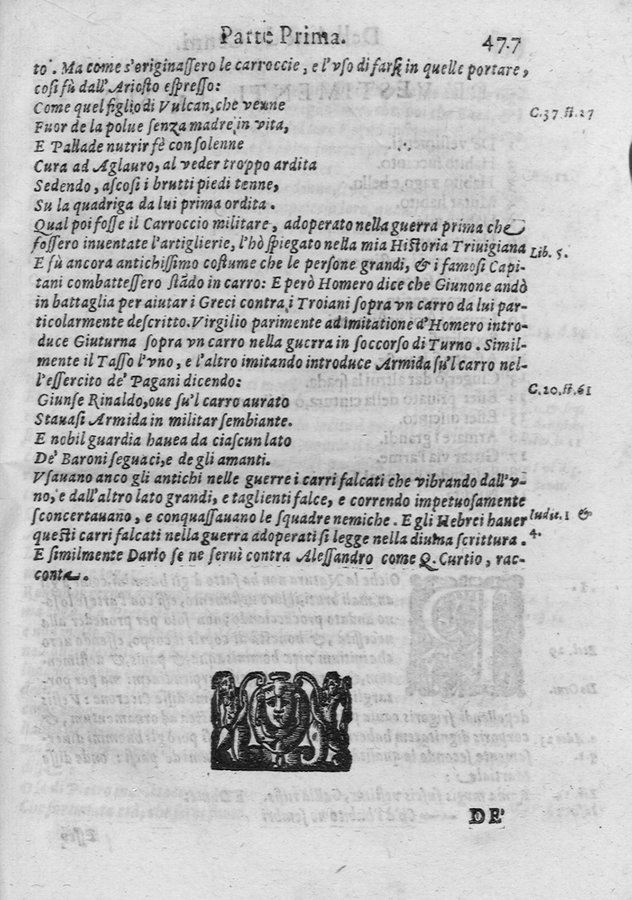 Parte Prima. 477
to. Ma come s'originaſſero le carroccie, e l'vſo di farſi in quelle portare,
coſi fù dall'Arioſto eſpreſſo:
Come quel figlio di Vulcan, che venne C.37 ſt.27
Fuor de la polue ſenza madre in vita,
E Pallade nutrir fè con ſolenne
Cura ad Aglauro, al veder troppo ardita
Sedendo, aſcoſi i brutti piedi tenne,
Su la quadriga da lui prima ordita.
Qual poi foſſe il Carroccio militare, adoperato nella guerra prima che
foſſero inuentate l'artiglierie, l'hò ſpiegato nella mia Hiſtoria Triuigiana Lib. 5.
E fù ancora antichiſſimo coſtume che le perſone grandi, & i famoſi Capi-
tani combatteſſero ſtãdo in carro: E però Homero dice che Giunone andò
in battaglia per aiutar i Greci contra i Troiani ſopra vn carro da lui par-
ticolarmente deſcritto. Virgilio parimente ad imitatione d'Homero intro-
duce Giuturna ſopra vn carro nella guerra in ſoccorſo di Turno. Simil-
mente il Taſſo l'vno, e l'altro imitando introduce Armida ſu'l carro nel-
l'eſſercito de' Pagani dicendo: C.20.ſt.61
Giunſe Rinaldo, oue ſu'l carro aurato
Stauaſi Armida in militar ſembiante.
E nobil guardia hauea da ciaſcun lato
De' Baroni ſeguaci, e de gli amanti.
Vſauano anco gli antichi nelle guerre i carri falcati che vibrando dall'v-
no, e dall'altro lato grandi, e taglienti falce, e correndo impetuoſamente
ſconcertauano, e conquaſſauano le ſquadre nemiche. E gli Hebrei hauer Iudic. 1 &
queſti carri falcati nella guerra adoperati ſi legge nella diuina ſcrittura. 4.
E ſimilmente Dario ſe ne ſeruì contra Aleſſandro come Q. Curtio, rac-
conta.
DE'